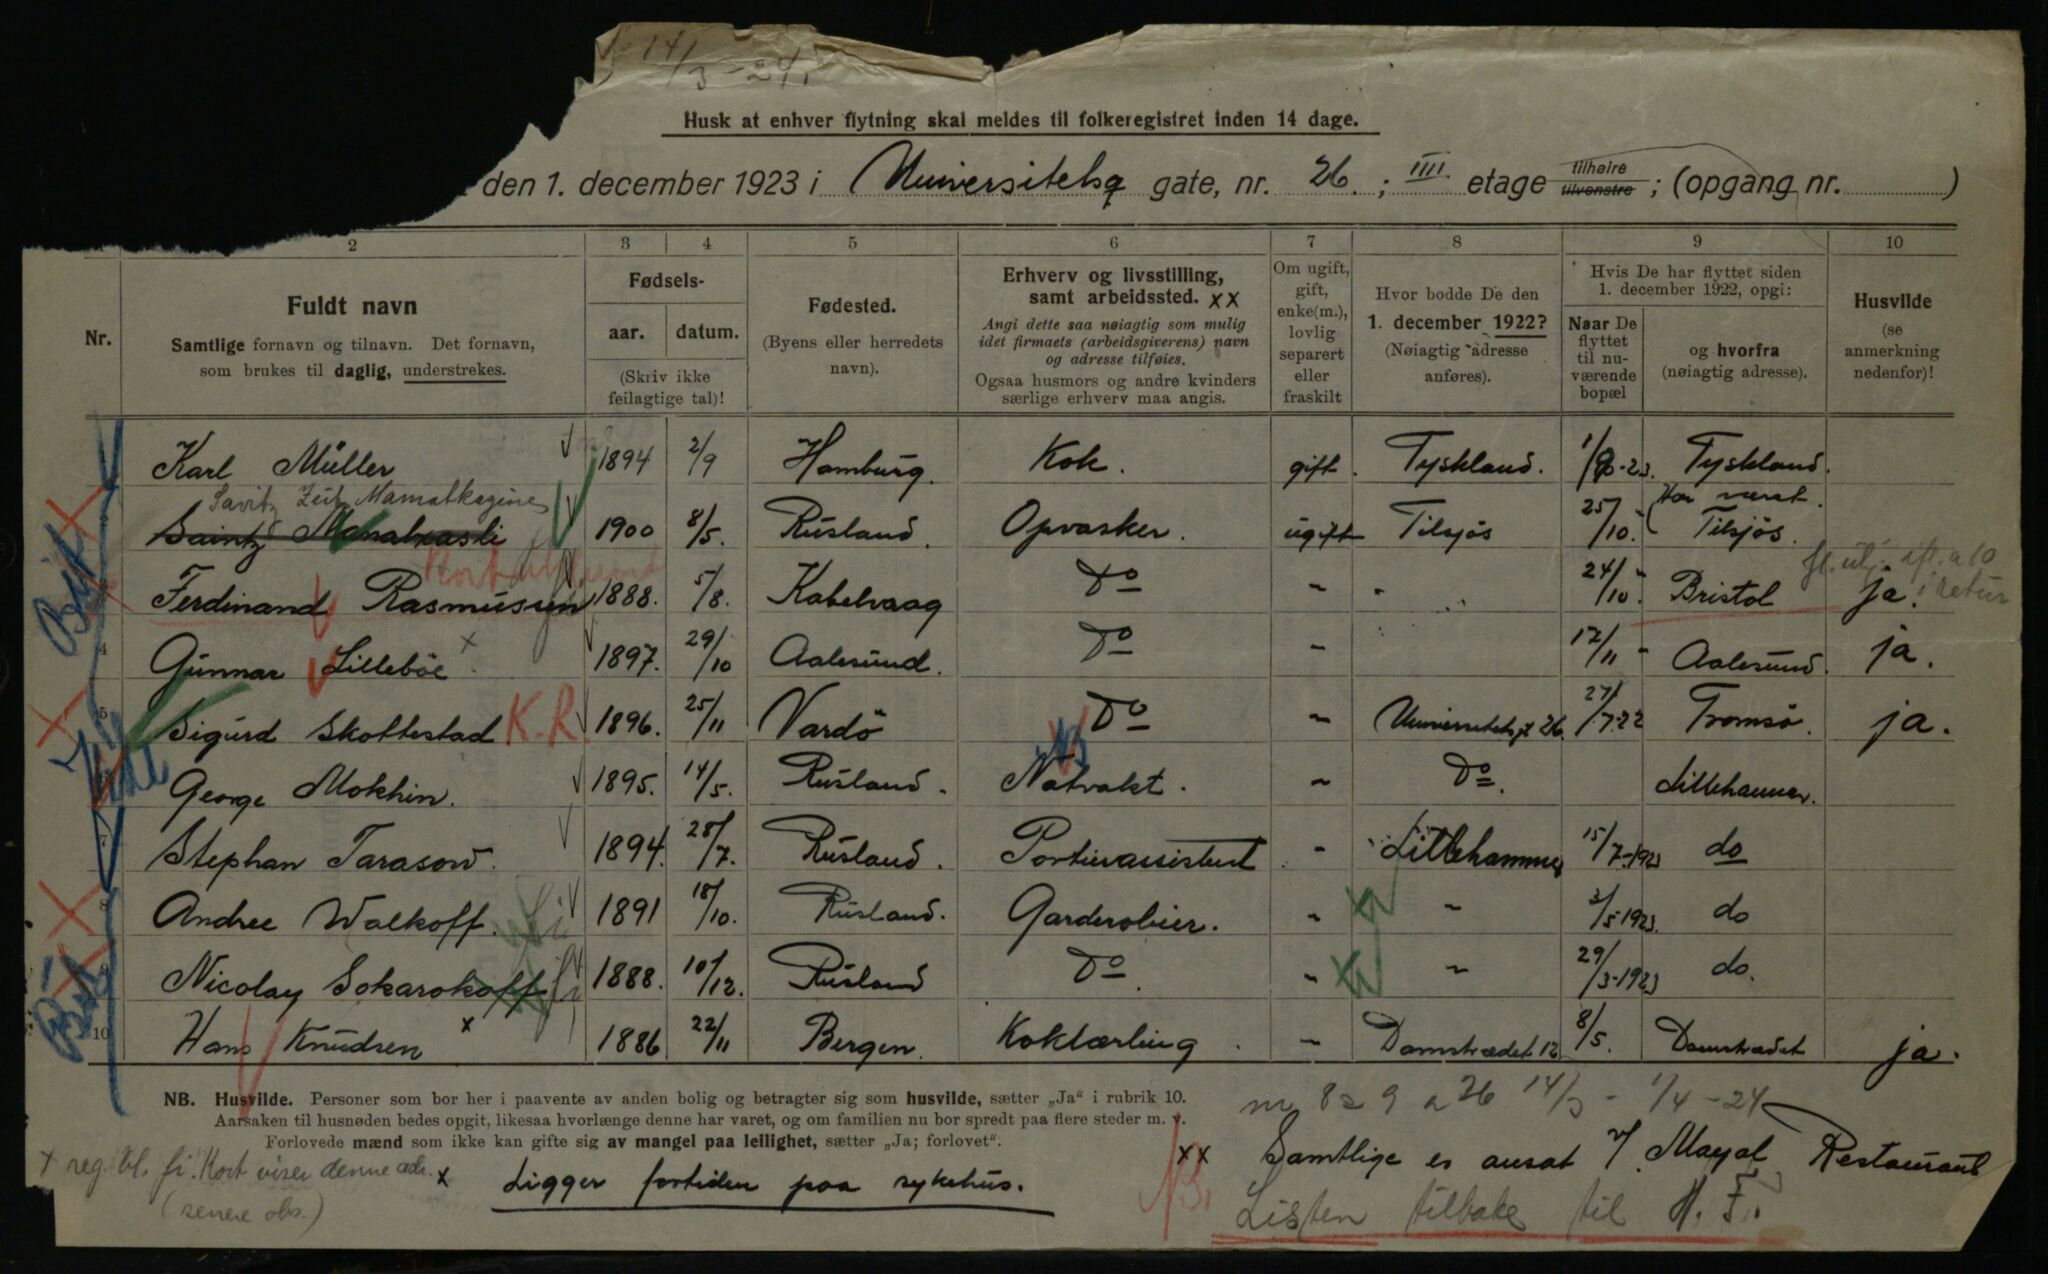 14/3-24.
Husk at enhver flytning skal meldes til folkeregistret inden 14 dage.
den 1. december 1923 i Universitetsg gate, nr. 26. ; IIII. etage tilhøire tilvenstre ; (opgang nr. )
2 3 4 5 6 7 8 9 10
Nr.
Fuldt navn
Samtlige fornavn og tilnavn. Det fornavn,
som brukes til daglig, understrekes.
Fødsels-
aar. datum.
(Skriv ikke
feilagtige tal)!
Fødested.
(Byens eller herredets
navn).
Erhverv og livsstilling,
samt arbeidssted. xx
Angi dette saa nøiagtig som mulig
idet firmaets (arbeidsgiverens) navn
og adresse tilføies.
Ogsaa husmors og andre kvinders
særlige erhverv maa angis.
Om ugift,
gift,
enke(m.),
lovlig
separert
eller
fraskilt
Hvor bodde De den
1. december 1922?
(Nøiagtig adresse
anføres).
Hvis De har flyttet siden
1. december 1922, opgi:
Naar De
flyttet
til nu-
værende
bopæl
og hvorfra
(nøiagtig adresse).
Husvilde
(se
anmerkning
nedenfor)!
Karl Müller 1894 2/9 Hamburg. Kok. gift. Tyskland. -23. Tyskland.
Savitz Zeitz Mamatkazine
Har været
Saintz 1900 8/5. Rusland. Opvasker. ugift Tilsjös 25/10. Tilsjös.
Ferdinand Rasmussen 1888. 5/8. Kabelvaag Do " " 24/10. Bristol ja. i retur
4 Gunnar Lilleböe x 1897. 29/10 Aalesund. Do " 17/11 Aalesund. ja.
5 Sigurd Skottestad K.R. 1896. 25/11 Vardö Do " Universitetsgt 26. 27/7-22 Tromsö. ja.
George Mokhin. 1895. 14/5. Rusland. Natvakt. " Do. Lillehammer.
7 Stephan Tarasow. 1894. 28/7. Rusland. Portierassistent " Lillehammer 15/7-1923 do
8 Andree Walkoff. 1891 18/10. Rusland. Garderobier. " " 2/5-1923. do
9 Nicolay Sokarokoff 1888. 10/12. Rusland Do. " " 29/3-1923 do.
10 Hans Knudsen x 1886 22/11 Bergen. Koklærling. " Damstrædet 12 8/5. Damstrædet ja.
NB. Husvilde. Personer som bor her i paavente av anden bolig og betragter sig som husvilde, sætter „Ja“ i rubrik 10.
Aarsaken til husnøden bedes opgit, likesaa hvorlænge denne har varet, og om familien nu bor spredt paa flere steder m. v.
Forlovede mænd som ikke kan gifte sig av mangel paa leilighet, sætter „Ja; forlovet“.
8 9 26 14/3 - 1/4 - 24
x reg. bl. fi. Kort viser denne adr.
(senere obs.)
x Ligger fortiden paa sykehus.
xx Samtlige er ansat v/. Mayol Restaurant
NB. Listen tilbake til H. F.